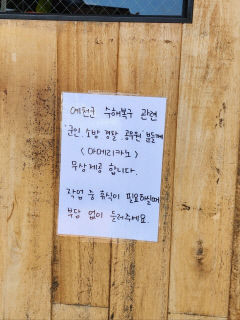 예천군 수해복구 관련
군인.소방.경찰.공무원 분들께
<아메리카노>
무상제공 합니다.
작업 중 휴식이 필요하실때
부담 없이 들러주세요.